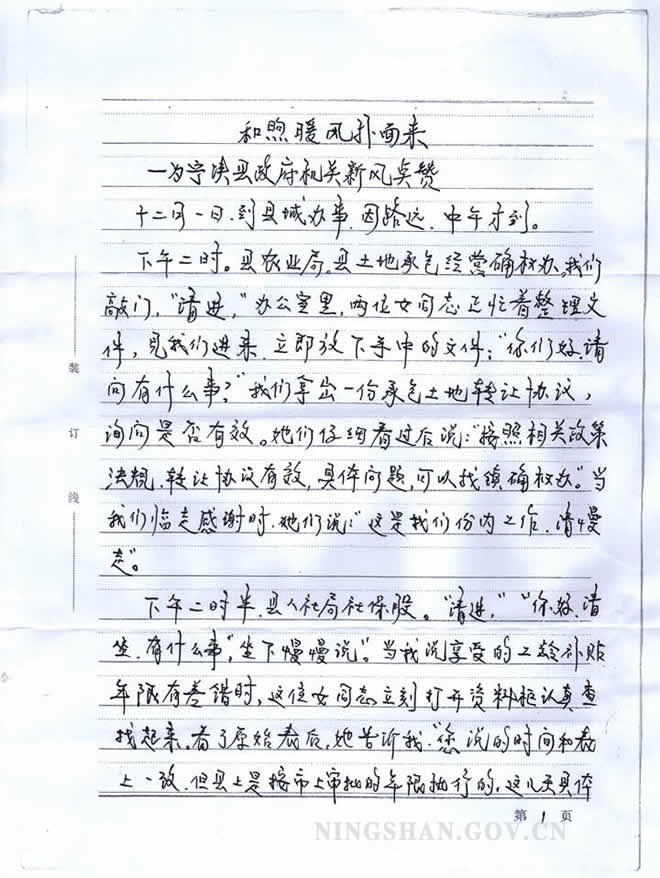 和煦暖风扑面来
—为宁陕县政府机关新风点赞
十二月一日.到县城办事.因路远.中午才到。
下午二时。县农业局.县土地承包经营确权办。我们
敲门，“请进，”办公室里，两位女同志正忙着整理文
件，见我们进来.立即放下手中的文件：“你们好.请
问有什么事？”我们拿出一份承包土地转让协议，
询问是否有效。她们仔细看过后说：“按照相关政策
法规.转让协议有效.具体问题，可以找镇确权办”。当
我们临走感谢时.她们说：“这是我们份内工作.请慢
走”。
下午二时半.县人社局社保股。“请进，”“你好.请
坐.有什么事”，坐下慢慢说”。当我说享受的工龄补贴
年限有差错时，这位女同志立刻打开资料柜认真查
找起来。看了原始表后，她告诉我.“您说的时间和表
上一致.但县上是按市上审批的年限执行的，这几天具体
装
订
线
第 1 页
NINGSHAN.GOV.CN